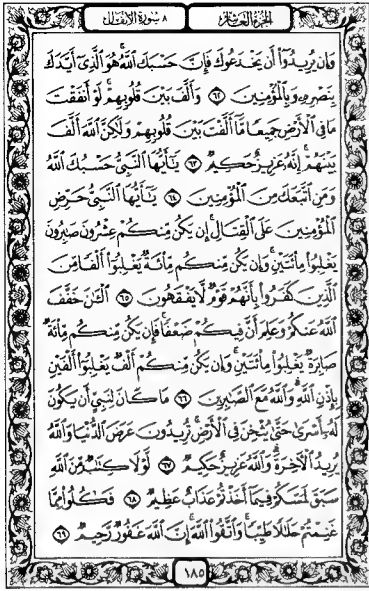 الجزء العاشر
٨ سورة الأنفال
وَإِن يُرِيدُوٓا۟ أَن يَخْدَعُوكَ فَإِنَّ حَسْبَكَ ٱللَّهُ هُوَ ٱلَّذِىٓ أَيَّدَكَ
بِنَصْرِهِۦ وَبِٱلْمُؤْمِنِينَ ٦٢ وَأَلَّفَ بَيْنَ قُلُوبِهِمْ لَوْ أَنفَقْتَ
مَا فِى ٱلْأَرْضِ جَمِيعًا مَّآ أَلَّفْتَ بَيْنَ قُلُوبِهِمْ وَلَـٰكِنَّ ٱللَّهَ أَلَّفَ
بَيْنَهُمْ إِنَّهُۥ عَزِيزٌ حَكِيمٌ ٦٣ يَـٰٓأَيُّهَا ٱلنَّبِىُّ حَسْبُكَ ٱللَّهُ
وَمَنِ ٱتَّبَعَكَ مِنَ ٱلْمُؤْمِنِينَ ٦٤ يَـٰٓأَيُّهَا ٱلنَّبِىُّ حَرِّضِ
ٱلْمُؤْمِنِينَ عَلَى ٱلْقِتَالِ إِن يَكُن مِّنكُمْ عِشْرُونَ صَـٰبِرُونَ
يَغْلِبُوا۟ مِا۟ئَتَيْنِ وَإِن يَكُن مِّنكُم مِّا۟ئَةٌ يَغْلِبُوٓا۟ أَلْفًا مِّنَ
ٱلَّذِينَ كَفَرُوا۟ بِأَنَّهُمْ قَوْمٌ لَّا يَفْقَهُونَ ٦٥ ٱلْـَٔـٰنَ خَفَّفَ
ٱللَّهُ عَنكُمْ وَعَلِمَ أَنَّ فِيكُمْ ضَعْفًا فَإِن يَكُن مِّنكُم مِّا۟ئَةٌ
صَابِرَةٌ يَغْلِبُوا۟ مِا۟ئَتَيْنِ وَإِن يَكُن مِّنكُمْ أَلْفٌ يَغْلِبُوٓا۟ أَلْفَيْنِ
بِإِذْنِ ٱللَّهِ وَٱللَّهُ مَعَ ٱلصَّـٰبِرِينَ ٦٦ مَا كَانَ لِنَبِىٍّ أَن يَكُونَ
لَهُۥٓ أَسْرَىٰ حَتَّىٰ يُثْخِنَ فِى ٱلْأَرْضِ تُرِيدُونَ عَرَضَ ٱلدُّنْيَا وَٱللَّهُ
يُرِيدُ ٱلْـَٔاخِرَةَ وَٱللَّهُ عَزِيزٌ حَكِيمٌ ٦٧ لَّوْلَا كِتَـٰبٌ مِّنَ ٱللَّهِ
سَبَقَ لَمَسَّكُمْ فِيمَآ أَخَذْتُمْ عَذَابٌ عَظِيمٌ ٦٨ فَكُلُوا۟ مِمَّا
غَنِمْتُمْ حَلَـٰلًا طَيِّبًا وَٱتَّقُوا۟ ٱللَّهَ إِنَّ ٱللَّهَ غَفُورٌ رَّحِيمٌ ٦٩
١٨٥